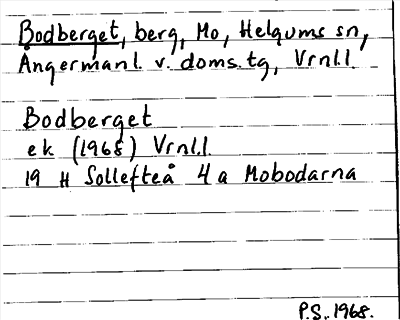 Bodberget, berg, Mo, Helgums sn,
Ångermanl. v. doms.tg, Vrnl.l.
Bodberget
ek (1968) Vrnl.l.
19 H Sollefteå 4a Mobodarna
P.S. 1968.